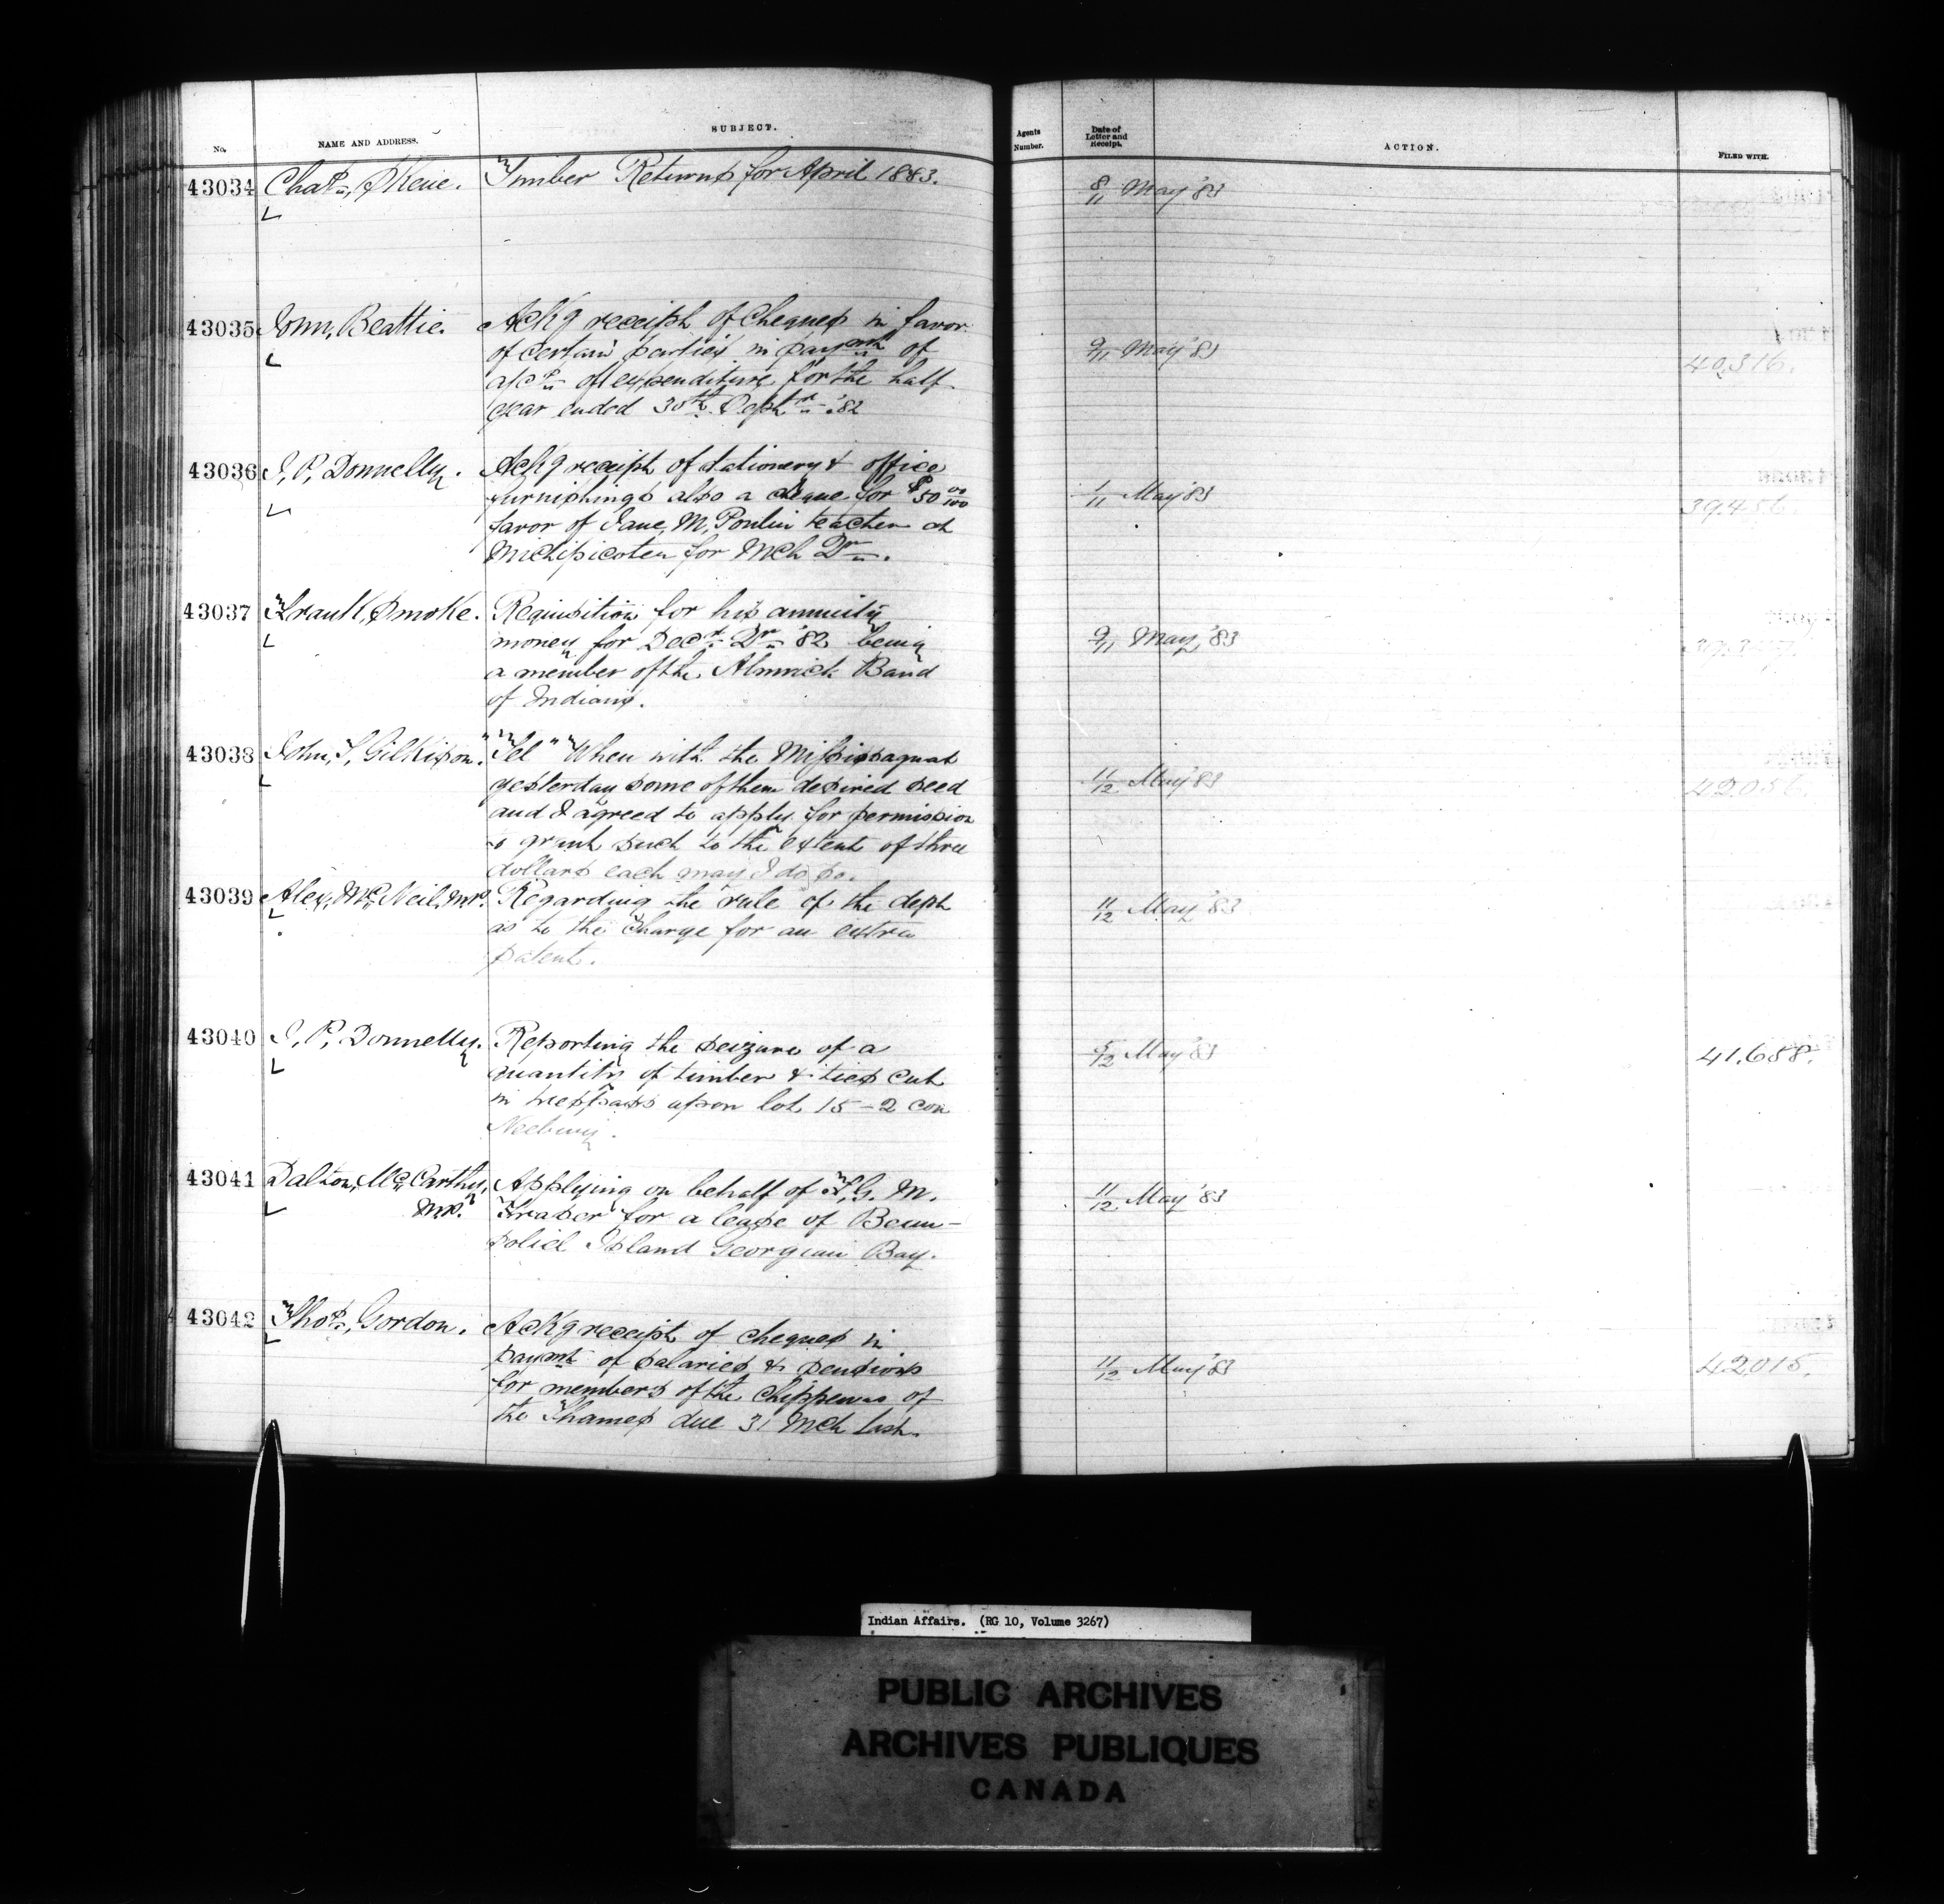 No.
NAME AND ADDRESS.
SUBJECT.
Agents
Number.
Date of
Letter and
Receipt.
ACTION.
FILED WITH.
43034 Chas, Skene. Timber Returns for April 1883. 8/11 May '83
43035 John, Beattie. Ackg receipt of Cheques in favor
of certain parties in paymt of 9/11 May '83 40,316.
a/cs of expenditure for the half
year ended 30th Septr '82
43036 J, P, Donnelly. Ackg receipt of stationery & office
furnishings also a cheque for $50 00/100 1/11 May '83 39,456.
favor of Jane, M, Poulin teacher at
Michipicoten for Mch Qr.
43037 Frank, Smoke. Requisition for his annuity
money for Decr Qr '82 being 9/11 May, '83
a member of the Alnwick Band
of Indians.
43038 John, T, Gilkison. "Tel" When with the Mississaguas
yesterday some of them desired seed 11/12 May '83 42,056.
and I agreed to apply for permission
to grant such to the extent of three
dollars each may I do so.
43039 Alex, Mc, Neil, MP. Regarding the rule of the dept 11/12 May '83
as to the charge for an extra
patent.
43040 J, P, Donnelly. Reporting the seizure of a 5/12 May '83 41,658.
quantity of timber & ties cut
in trespass upon lot 15 - 2 con
Neebing.
43041 Dalton, Mc, Carthy, Applying on behalf of F, G. M. 11/12 May '83
MP. Fraser for a lease of Beau-
soliel Island Georgian Bay.
43042 Thos, Gordon. Ackg receipt of cheques in
paymt of salaries & pensions 11/12 May '83 42,015.
for members of the Chippewas of
the Thames due 31 Mch last.
Indian Affairs. (RG 10, Volume 3267)
PUBLIC ARCHIVES
ARCHIVES PUBLIQUES
CANADA